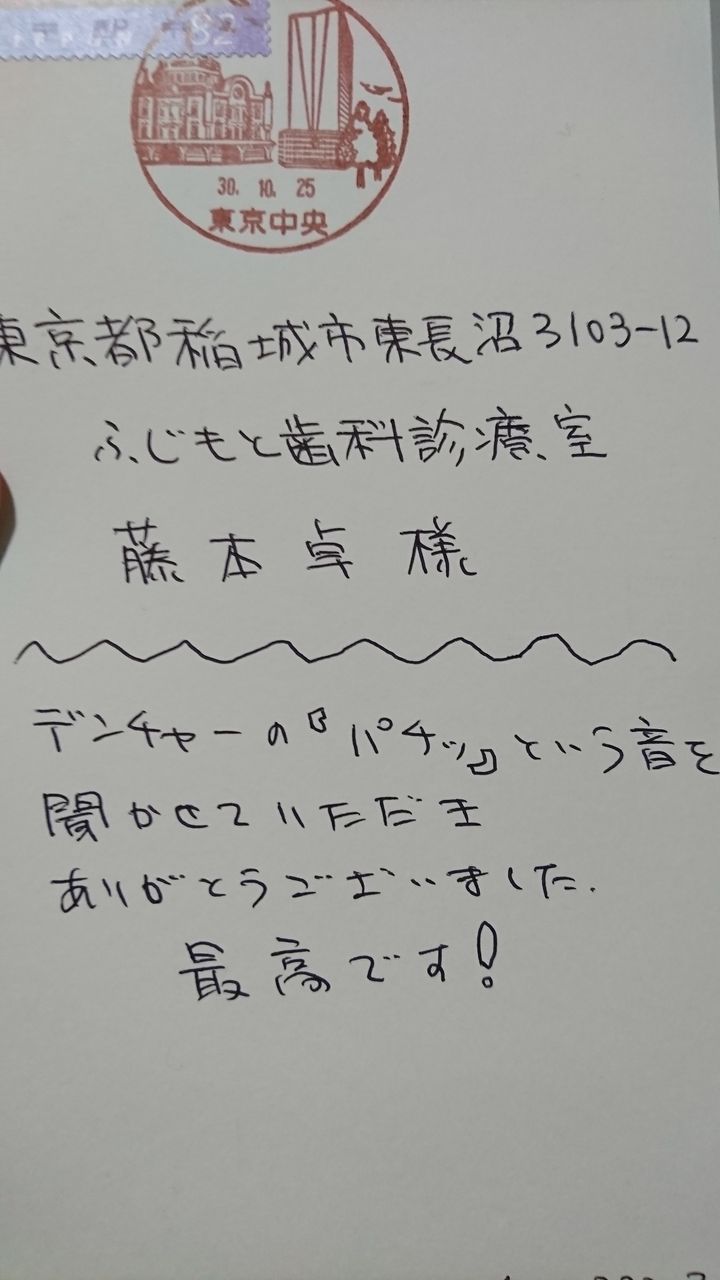 82
30. 10. 25
東京中央
東京都稲城市東長沼3103-12
ふじもと歯科診療室
藤本卓様
デンチャーの『パチッ』という音を
聞かせていただき
ありがとうございました.
最高です!